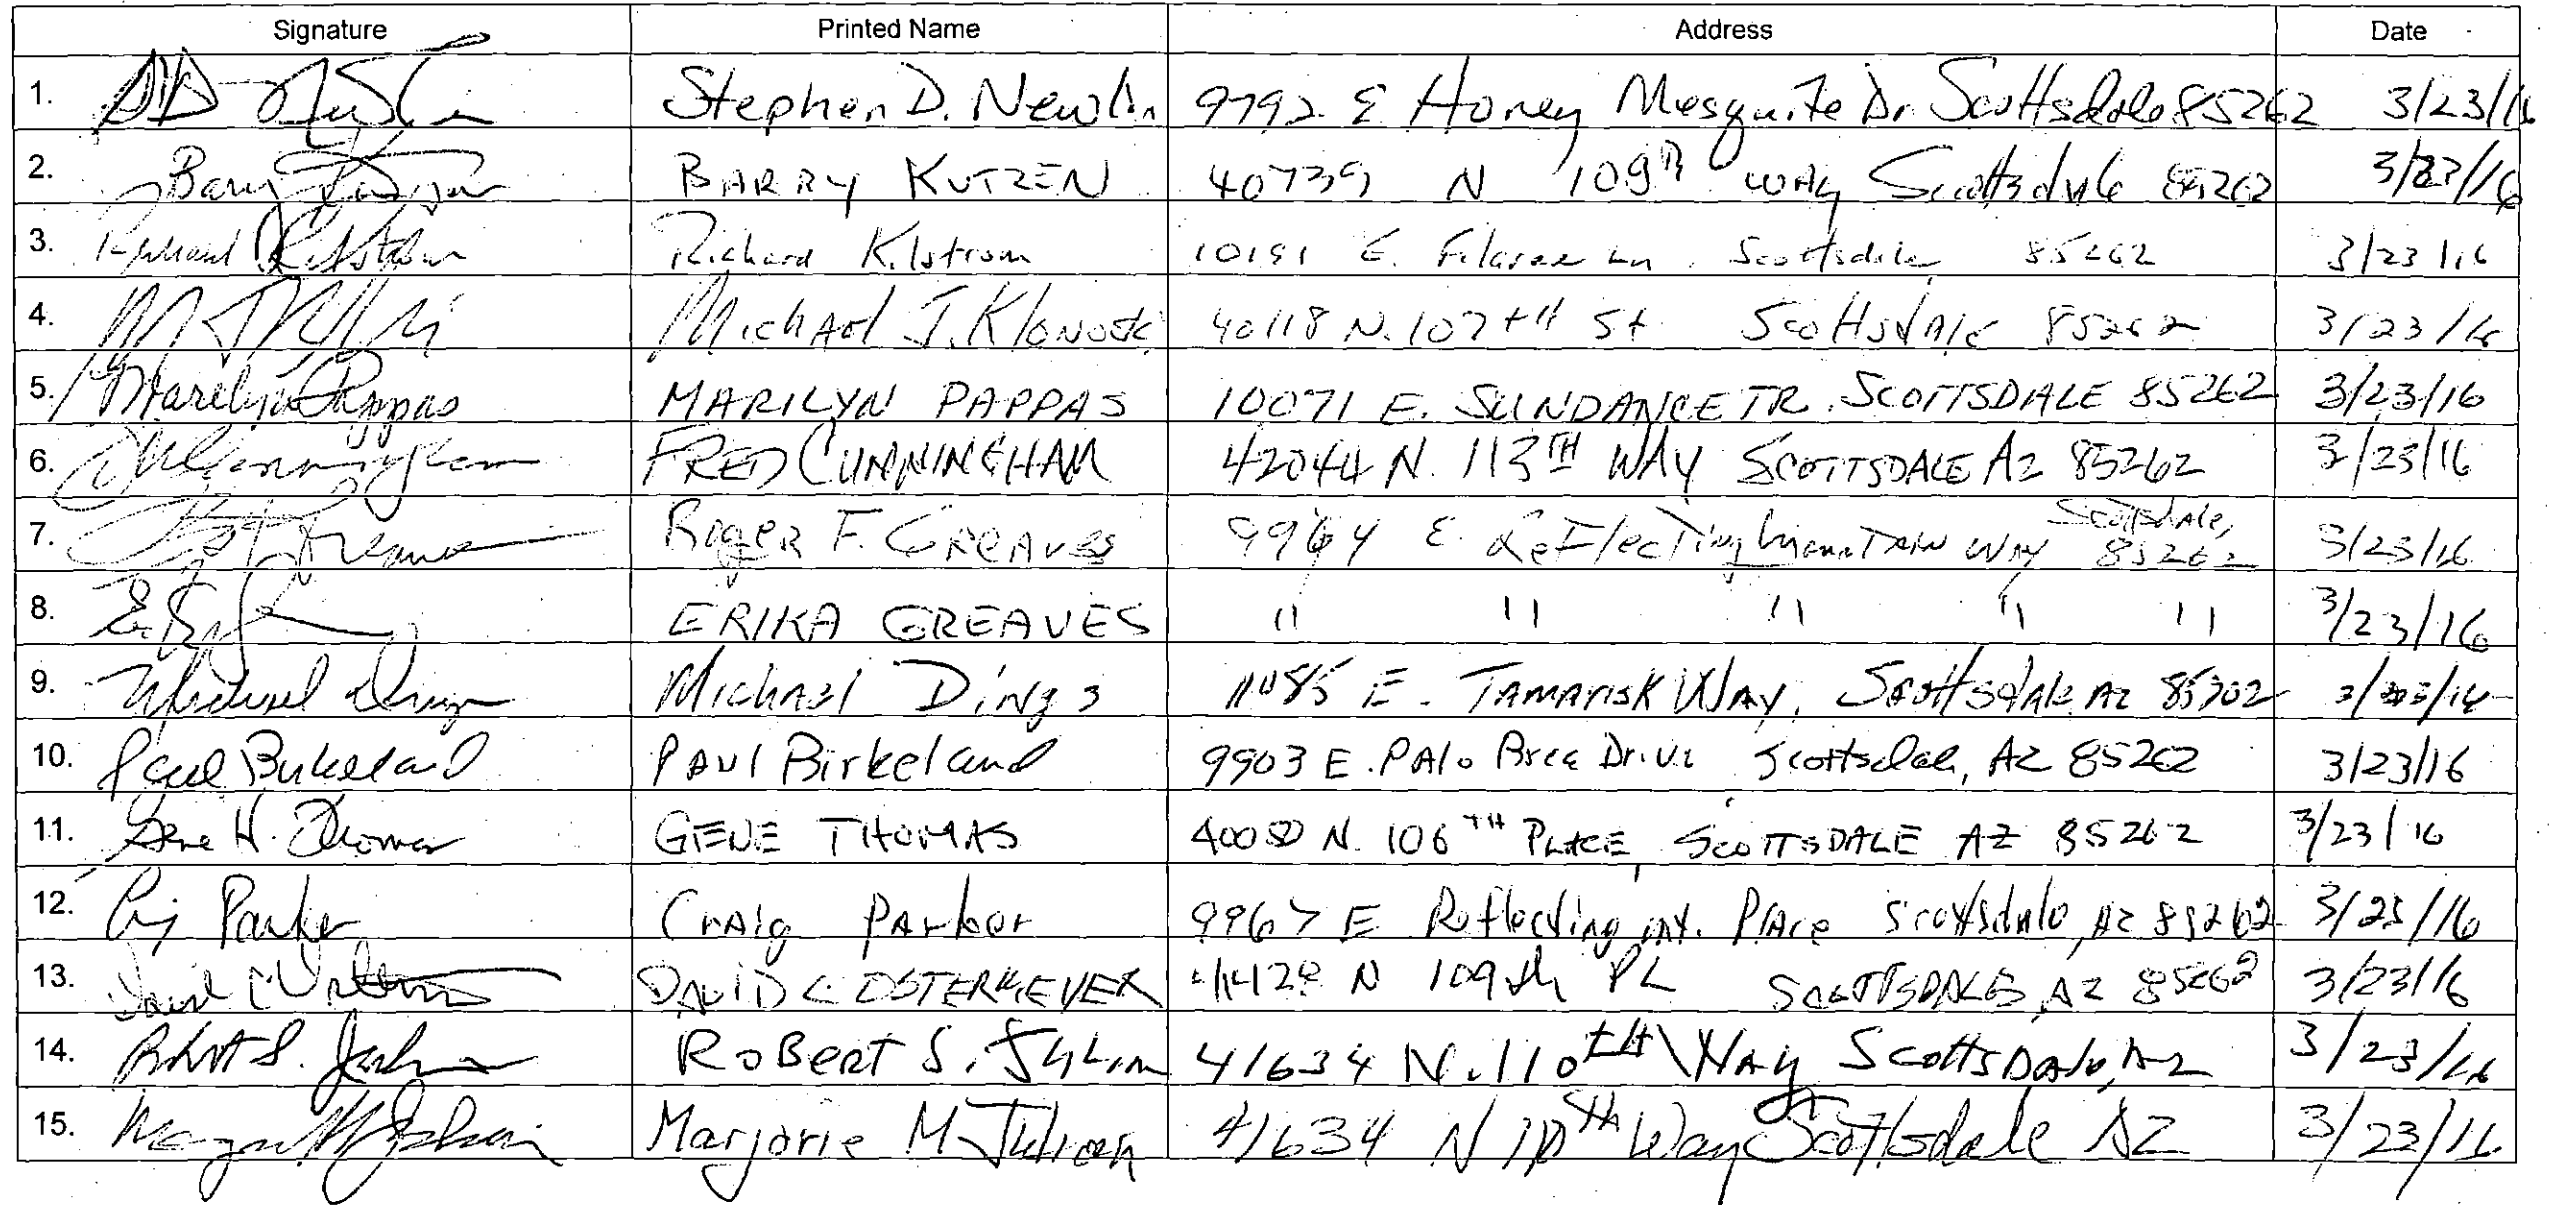 Signature Printed Name Address Date
1. Stephen D. Newlin 9792 E Honey Mesquite Dr. Scottsdale 85262 3/23/16
2. BARRY KUTZEN 40739 N 109th WAY Scottsdale 85262 3/23/16
3. Richard Kilstrom 10191 E. Filaree Ln. Scottsdale 85262 3/23/16
4. Michael J. Klonoski 40118 N. 107th St. Scottsdale 85262 3/23/16
5. Marilyn Pappas MARILYN PAPPAS 10071 E. SUNDANCE TR. SCOTTSDALE 85262 3/23/16
6. FRED CUNNINGHAM 42044 N. 113TH WAY SCOTTSDALE AZ 85262 3/23/16
7. Roger F. GREAVES 9964 E. Reflecting Mountain Way Scottsdale, 85262 3/23/16
8. ERIKA GREAVES " " " " " 3/23/16
9. Michael Dings Michael Dings E. TAMARISK WAY, Scottsdale AZ 3/23/16
10. Paul Birkeland PAUL Birkeland 9903 E. PAlo Brea Drive Scottsdale, AZ 85262 3/23/16
11. Gene H. Thomas GENE THOMAS N. 106TH PLACE, SCOTTSDALE AZ 85262 3/23/16
12. Craig Parker 9967 E Reflecting mt. Place Scottsdale, AZ 85262 3/23/16
13. DAVID C N 109th PL SCOTTSDALE, AZ 85262 3/23/16
14. Robert S. Julian RoBert S. Julian 41634 N. 110th Way Scottsdale, Az 3/23/16
15. Marjorie M Julian 41634 N 110th Way Scottsdale AZ 3/23/16